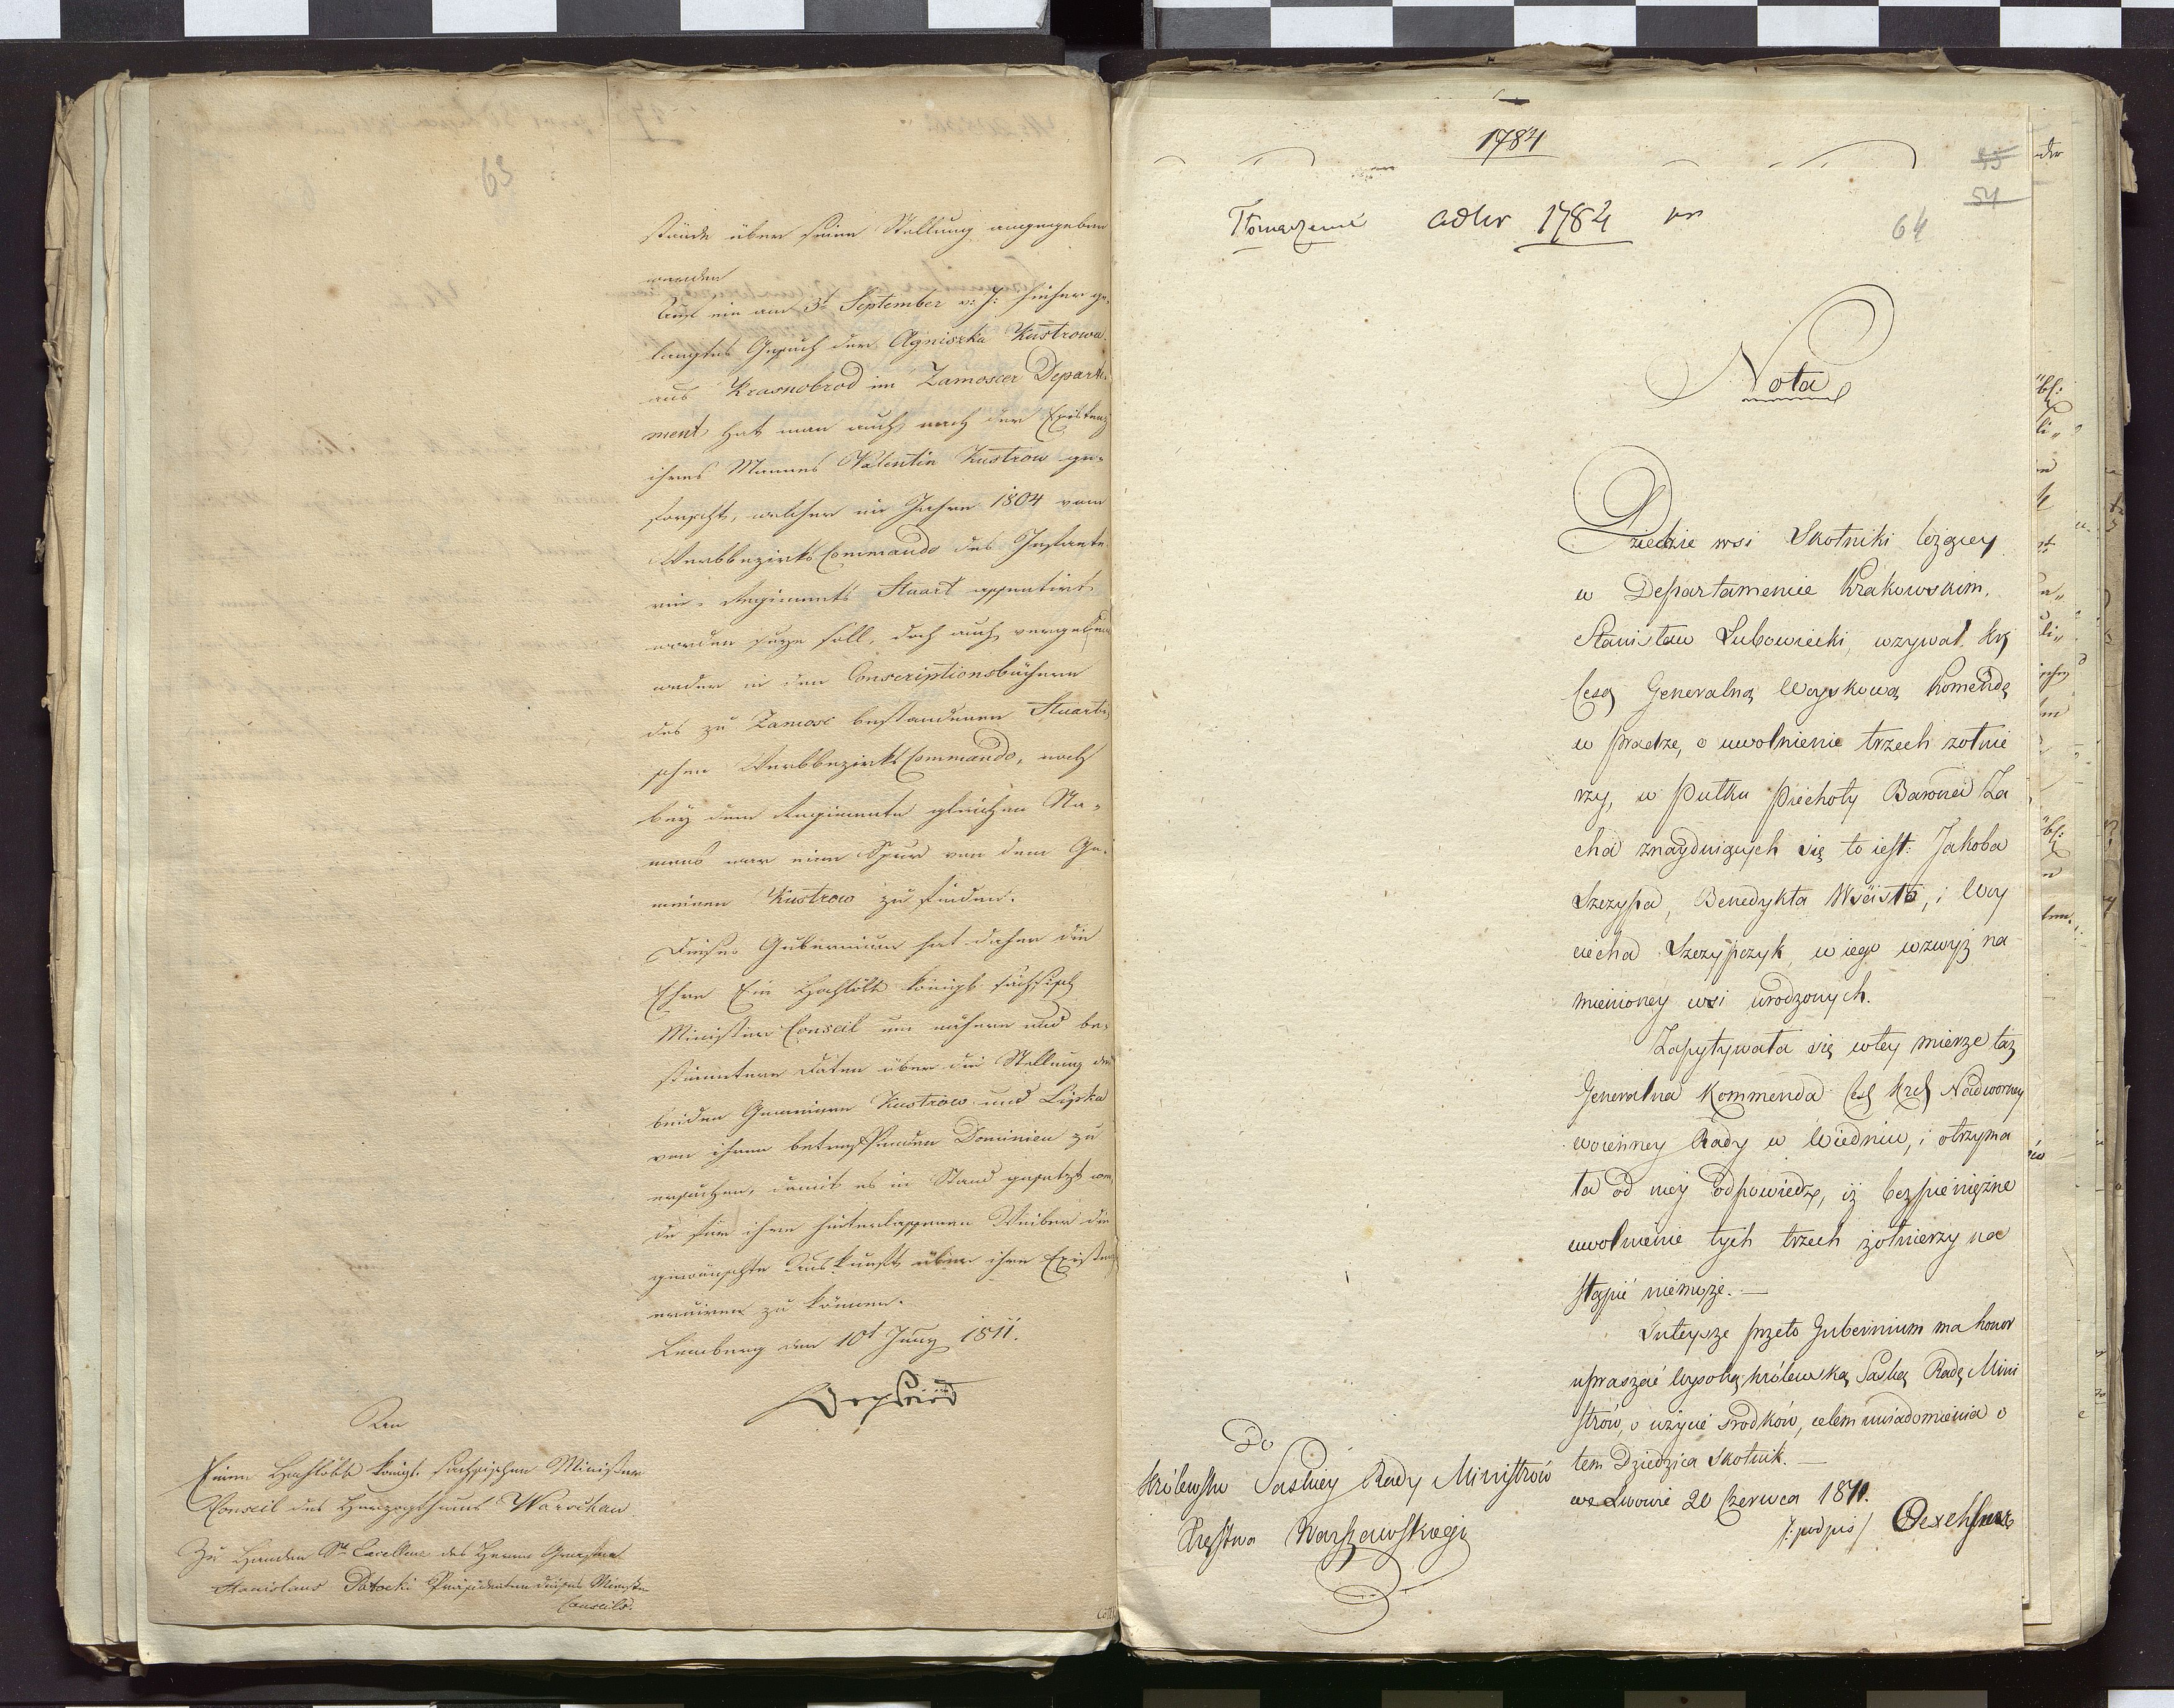 63
stände über seine Stellung angegeben
werden
Auf ein am 3t September v: J: hieher ge-
langtes Gesuch der Agniszka Kustrowa
aus Krasnobrod im Zamoscer Departe-
ment hat man auch nach der Existenz
ihres Mannes Valentin Kustrow ge-
forscht, welcher im Jahre 1804 vom
Werbbezirks Commando des Infante-
rie-Regiments Stuart assentirt
worden seyn soll, doch auch vergebens
weder in den Conscriptionsbüchern
des zu Zamosc bestandenen Stuarti-
schen Werbbezirks Commando, noch
bey dem Regimente gleichen Na-
mens war eine Spur von dem Ge-
meinen Kustrow zu finden.
Dieses Gubernium hat daher die
Ehre Ein Hochlöbl königl sächsisch
Minister Conseil um nähere und be-
stimmtere Daten über die Stellung der
beiden Gemeinen Kustrow und Lipka
von ihren betreffenden Dominien zu
ersuchen, damit es in Stand gesetzt wer-
de für ihre hinterlassenen Weiber die
gewünschte Auskunft über ihre Existenz
eruiren zu können.
Lemberg den 10t Juny 1811.
An
Einen Hochlöbl königl. sachsischen Minister
Conseil des Herzogthums Warschau
Zu Handen Sr Excellenz des Herrn Grafen
Stanislaus Potocki Präsidenten dieses Minister
Conseils.
1784
45
54
64
Tłomaczenie adNr 1784
Nota
Dziedzic wsi Skotniki leżącey
w Departamencie Krakowskim,
Stanisław Łubowiecki, wzywał krj
Cesą Generalną Woyskową Komendę
w Pradze, o uwolnienie trzech zołnie
rzy, w Pułku Piechoty Barona Za
cha znayduiących się to iest: Jakoba
Szczypa, Benedykta Wŏisło, i Woy
ciecha Szczypczyk w iego wzwyż na
mienioney wsi urodzonych.
Zapytywała się wtey mierze taż
Generalna Kommenda Ces Krol Nadworney
woienney Rady w Wiedniu, i otrzyma
ła od niey odpowiedz, iż bezpieniężne
uwolnienie tych trzech żołnierzy na
stąpić niemoże. —
Tuteysze przeto Gubernium ma honor
upraszać Wysoką królewską Saską Radę Mini
strów, o użycie srodków, celem uwiadomienia o
tem Dziedzica Skotnik. —
we Lwowie 20 Czerwca 1811.
/: podpis /
Do
Królewsko Saskiey Rady Ministrów
Xięstwa Warszawskiego